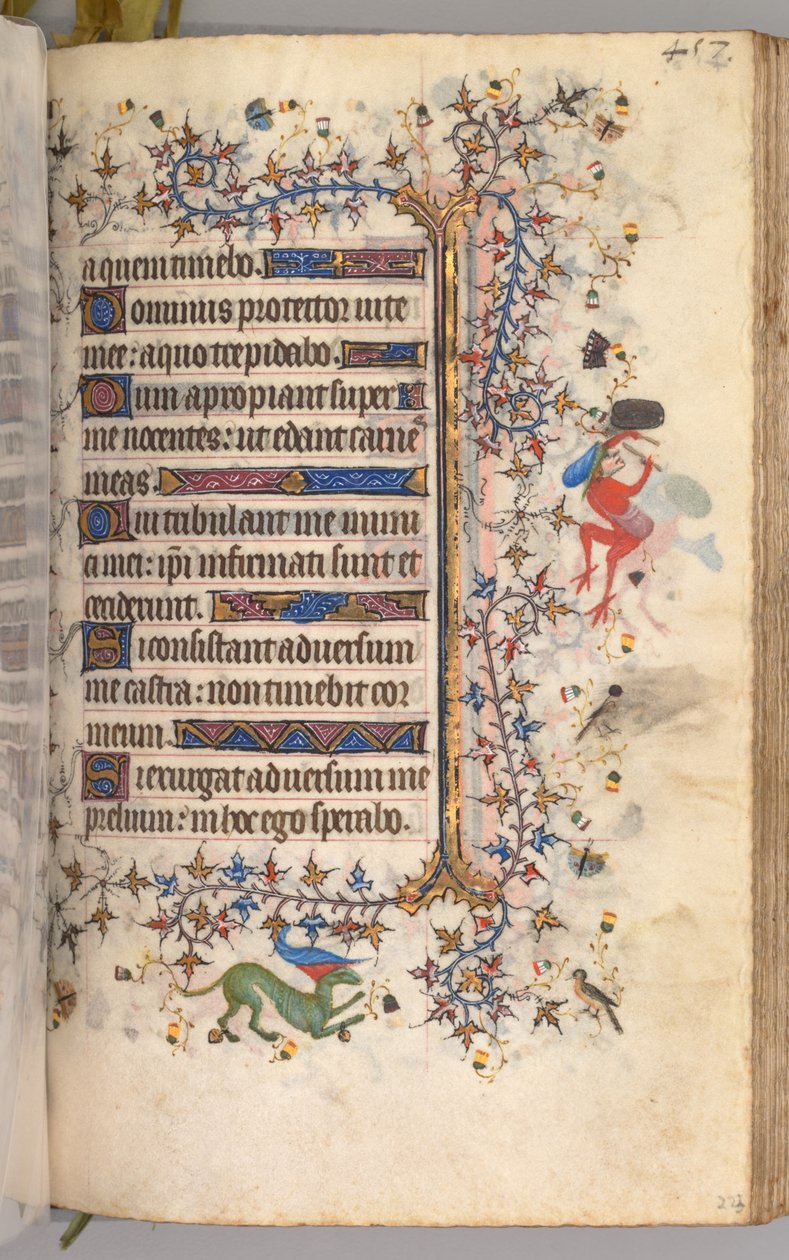 457.
a quem timebo.
Dominus protector uite
mee: a quo trepidabo.
Dum apropiant super
me nocentes: ut edant carnes
meas.
Qui tribulant me inimi
ci mei: ip̄i infirmati sunt et
ceciderunt.
Si consistant aduersum
me castra: non timebit cor
meum.
Si exurgat aduersum me
prelium: in hoc ego sperabo.